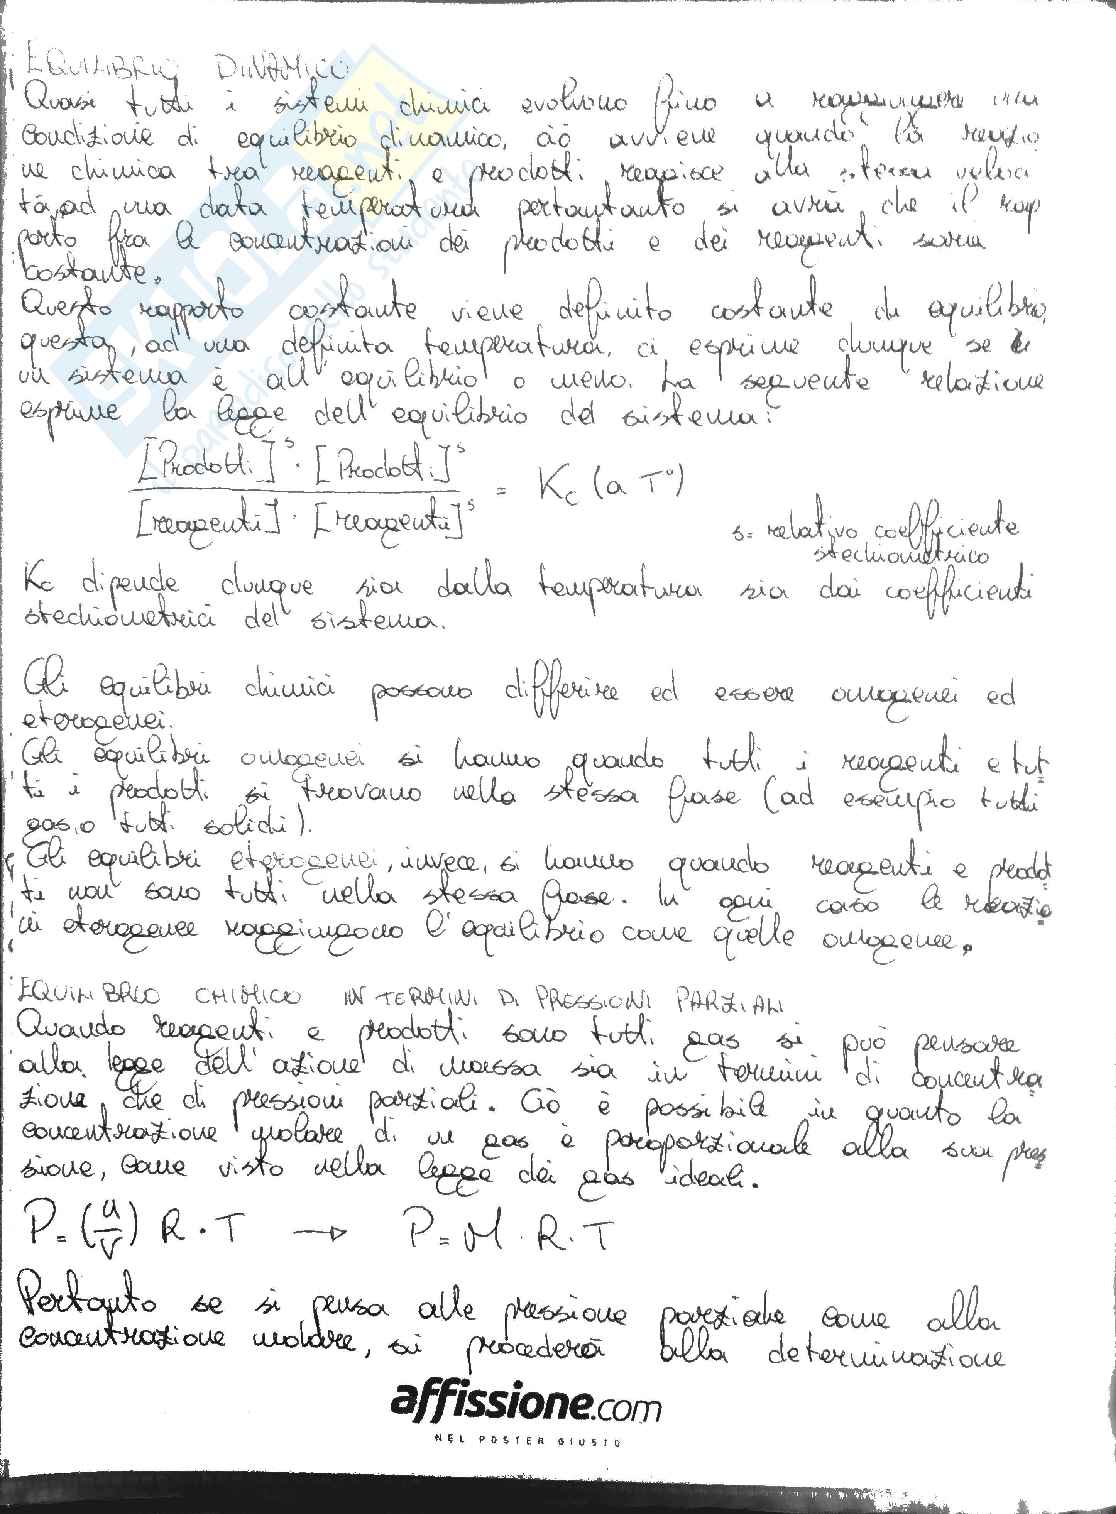 EQUILIBRIO DINAMICO
Quasi tutti i sistemi chimici evolvono fino a raggiungere una
condizione di equilibrio dinamico, ciò avviene quando la reazio
ne chimica tra reagenti e prodotti reagisce alla stessa veloci
tà, ad una data temperatura pertantanto si avrà che il rap
porto fra le concentrazioni dei prodotti e dei reagenti saria
costante.
Questo rapporto costante viene definito costante di equilibrio,
questa, ad una definita temperatura, ci esprime dunque se è
un sistema è all'equilibrio o meno. La seguente relazione
esprime la legge dell'equilibrio del sistema:
[Prodotti]^s · [Prodotti]^s
[reagenti] · [reagenti]^s = Kc (a T°)
s= relativo coefficiente
stechiometrico
Kc dipende dunque sia dalla temperatura sia dai coefficienti
stechiometrici del sistema.
Gli equilibri chimici possono differire ed essere omogenei ed
eterogenei.
Gli equilibri omogenei si hanno quando tutti i reagenti e tut
ti i prodotti si trovano nella stessa fase (ad esempio tutti
gas, o tutti solidi).
Gli equilibri eterogenei, invece, si hanno quando reagenti e prodot
ti non sono tutti nella stessa fase. In ogni caso le reazio
ni eterogenee raggiungono l'equilibrio come quelle omogenee.
EQUILIBRIO CHIMICO IN TERMINI DI PRESSIONI PARZIALI
Quando reagenti e prodotti sono tutti gas si può pensare
alla legge dell'azione di massa sia in termini di concentra
zione, che di pressioni parziali. Ciò è possibile in quanto la
concentrazione molare di un gas è paroporzionale alla sua pres
sione, come visto nella legge dei gas ideali.
P = (n/V) R · T → P = M · R · T
Pertanto se si pensa alle pressione parziale come alla
concentrazione molare, si procederà alla determinazione
affissione.com
NEL POSTER GIUSTO